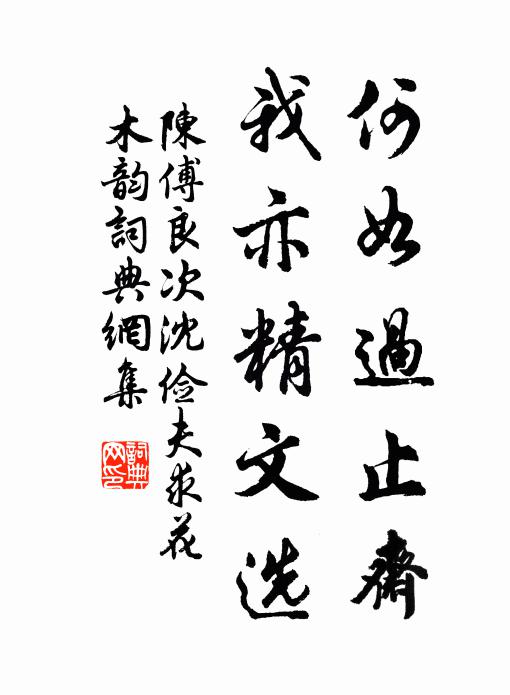 何如過止齋
我亦精文选
陳傅良次沈儉夫求花
木韵詞典網集
詞典網印